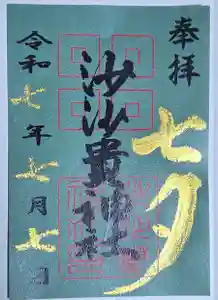 奉拝
七夕
沙沙貴神社
令和七年七月七日